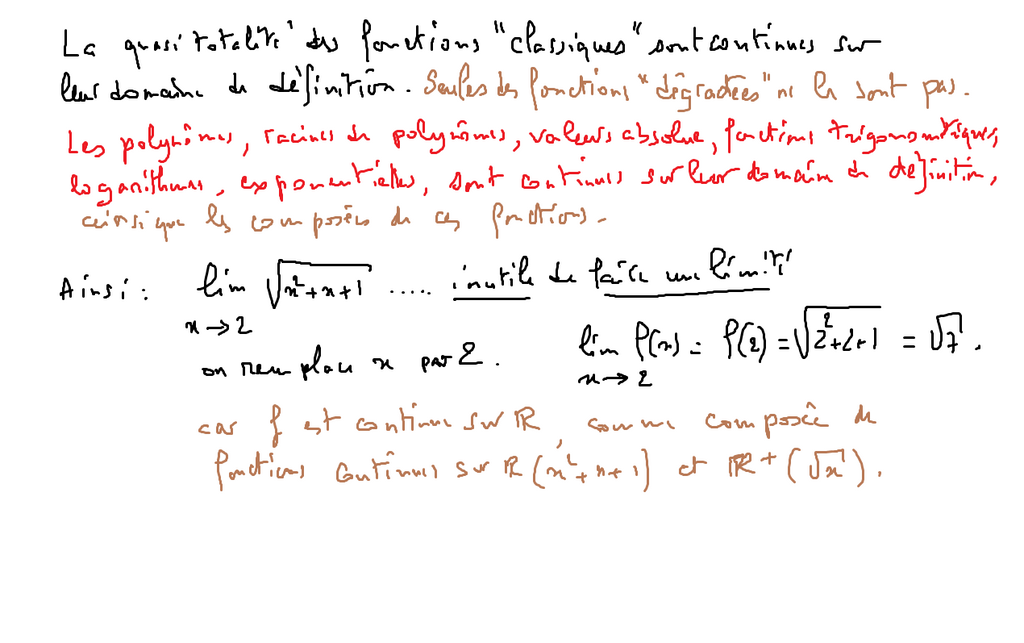 La quasi totalité des fonctions "classiques" sont continues sur
leur domaine de définition. Seules des fonctions "dégradées" ne le sont pas.
Les polynômes, racines de polynômes, valeurs absolue, fonctions trigonométriques,
logarithmes, exponentielles, sont continues sur leur domaine de définition,
ainsi que les composées de ces fonctions.
Ainsi : lim √(x²+x+1) ..... inutile de faire une limite
x→2
on remplace x par 2. lim f(x) = f(2) = √(2²+2+1) = √7.
x→2
car f est continue sur ℝ, comme composée de
fonctions continues sur ℝ (x²+x+1) et ℝ+ (√x).